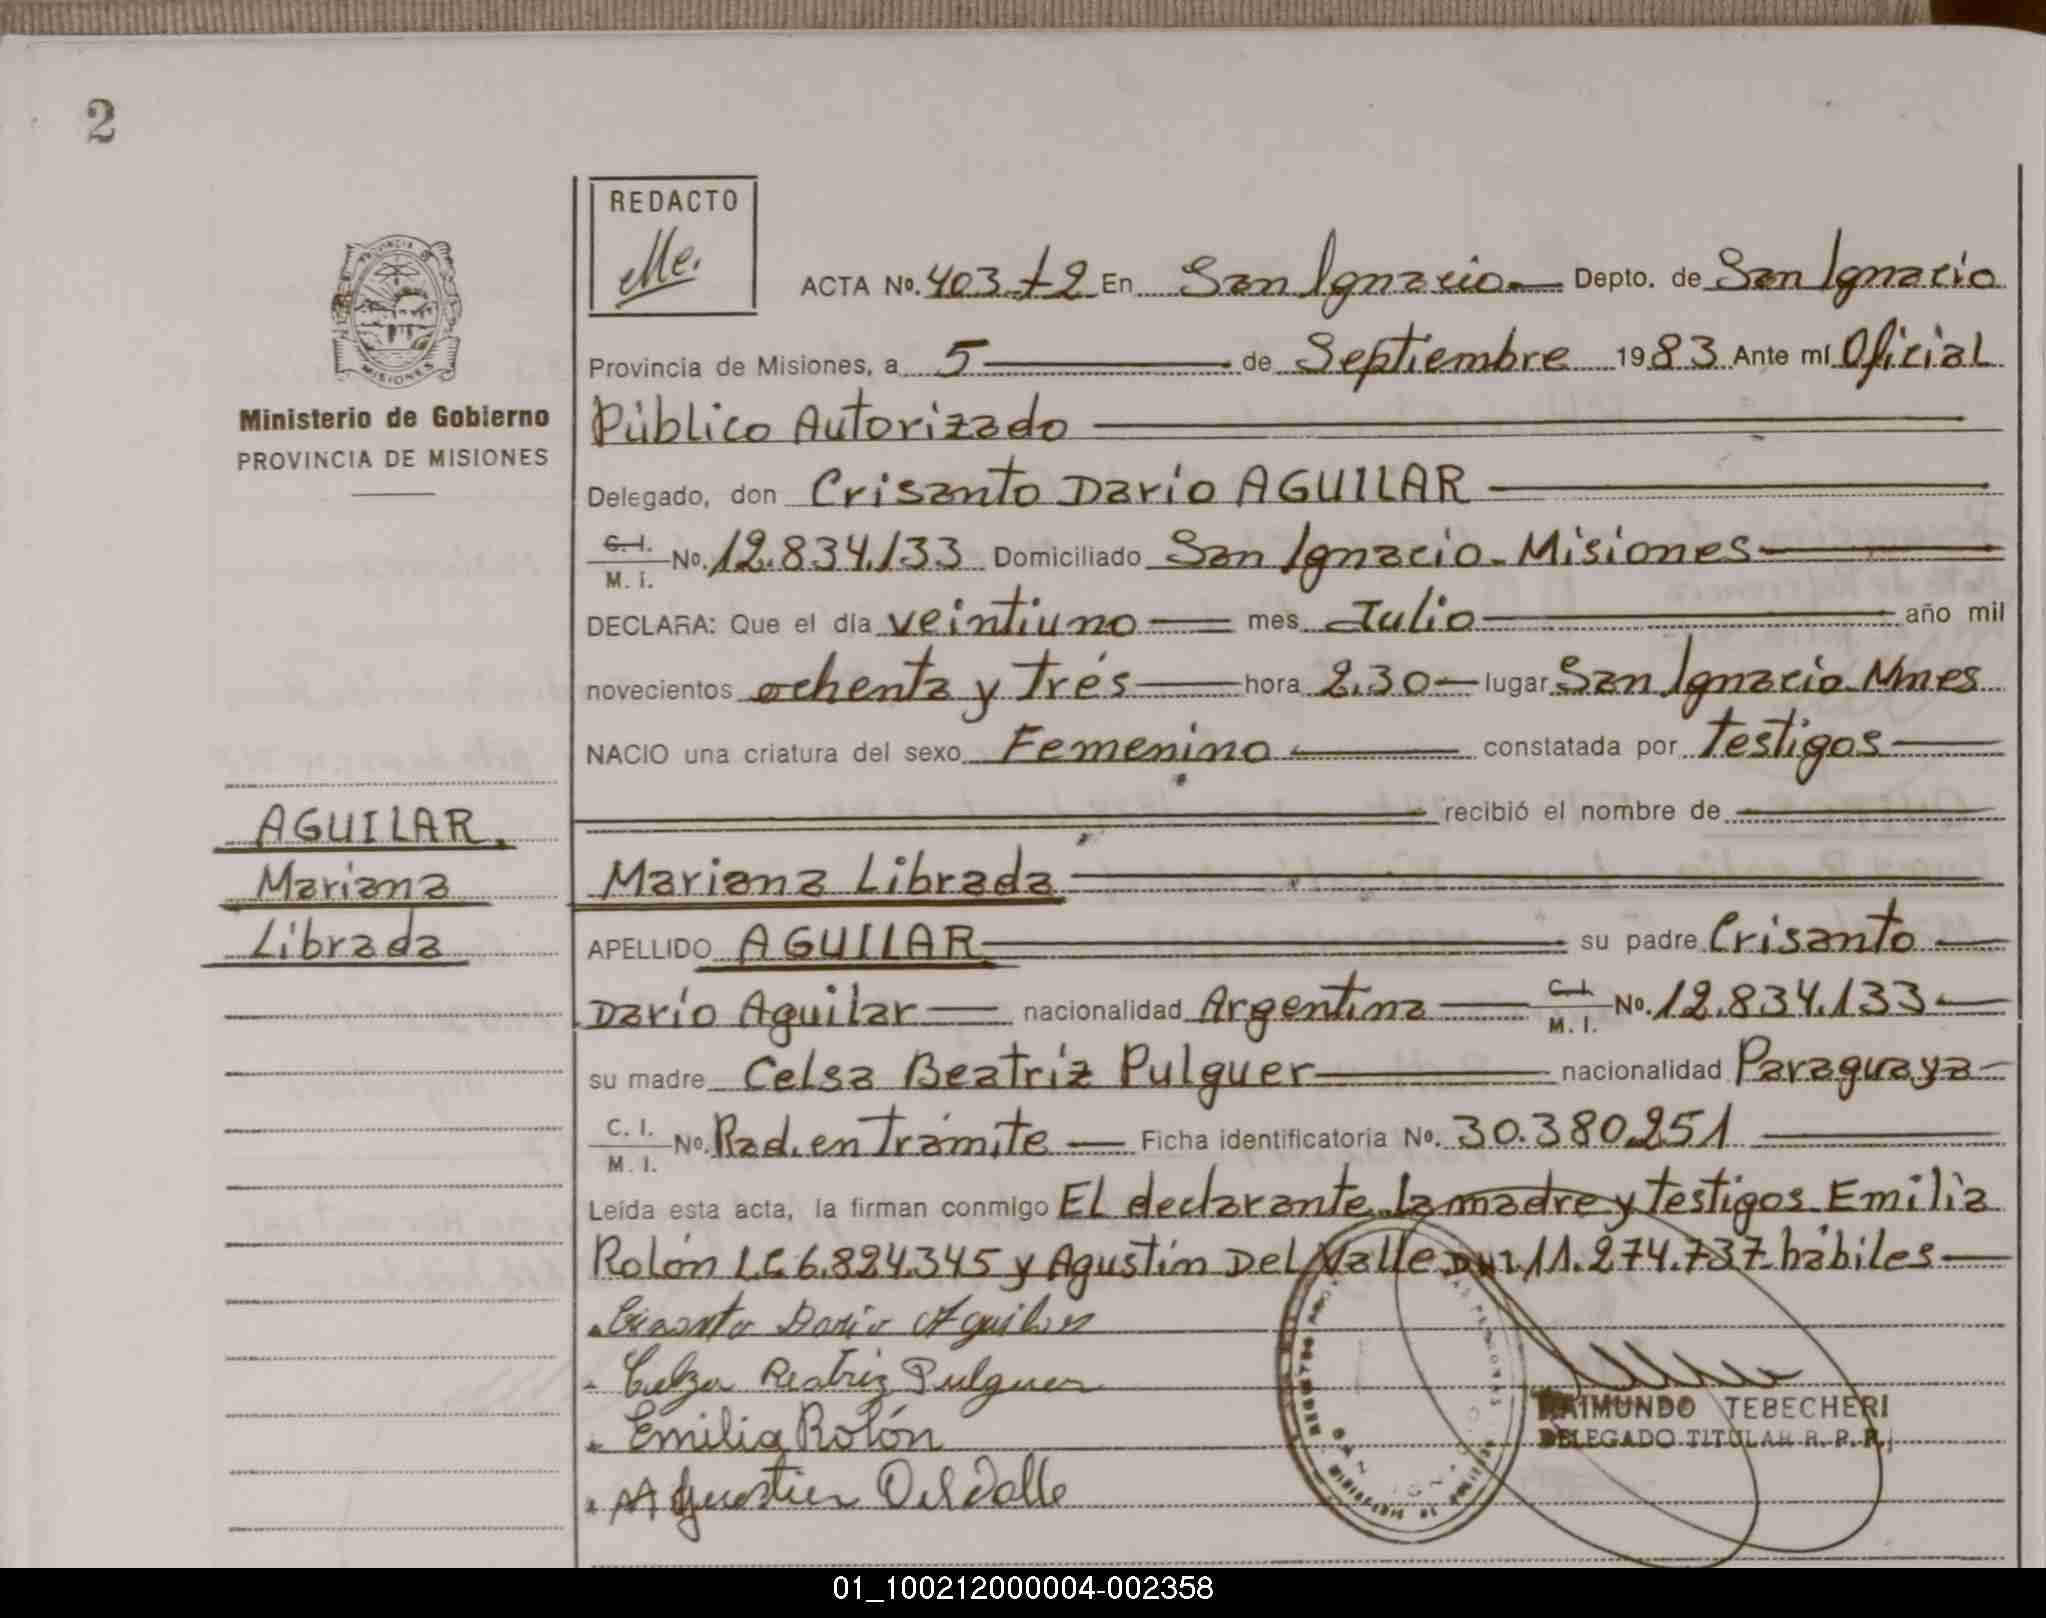 2
REDACTO
Me.
ACTA No. 403 t2 En San Ignacio Depto. de San Ignacio
Provincia de Misiones, a 5 de Septiembre 1983 Ante mí Oficial
Público Autorizado
Delegado, don Crisanto Darío AGUILAR
C. I. M. I. No. 12.834.133 Domiciliado San Ignacio - Misiones
DECLARA: Que el día veintiuno mes Julio año mil
novecientos ochenta y trés hora 2.30 lugar San Ignacio Mnes
NACIO una criatura del sexo Femenino constatada por testigos
recibió el nombre de
Mariana Librada
APELLIDO AGUILAR su padre Crisanto
Darío Aguilar nacionalidad Argentina C. I. M. I. No. 12.834.133
su madre Celsa Beatriz Pulguer nacionalidad Paraguaya
C. I. M. I. No. Rad. en Trámite Ficha identificatoria No. 30.380.251
Leída esta acta, la firman conmigo El declarante, la madre y testigos Emilia
Rolón L.C 6.824.345 y Agustín Del Valle DNI 11.274.737 hábiles
Crisanto Dario Aguilar
Celza Beatriz Pulguer
Emilia Rolón
Agustin Del Valle
RAIMUNDO TEBECHERI
DELEGADO TITULAR R. P. P.
PROVINCIA DE
MISIONES
Ministerio de Gobierno
PROVINCIA DE MISIONES
AGUILAR.
Mariana
Librada
01_100212000004-002358